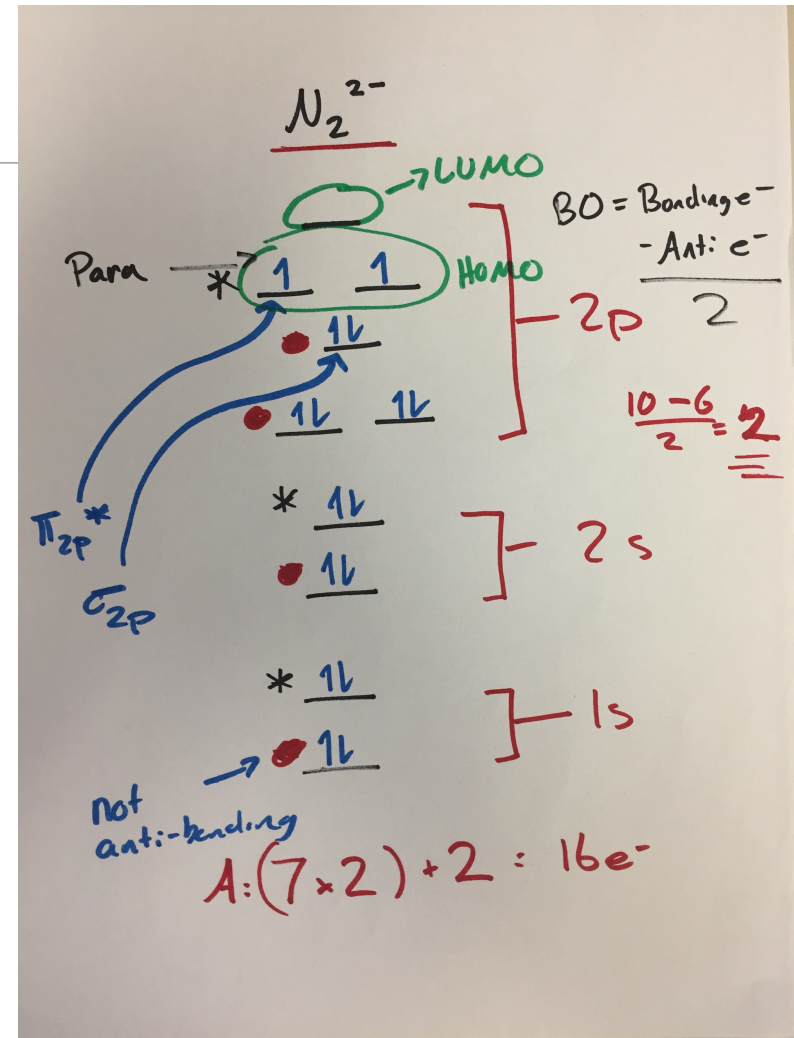 N₂²⁻
→LUMO
BO = Bonding e⁻
- Anti e⁻
2
Para → * 1 1 HOMO
1L
1L 1L
2p
10 - 6
2
= 2
π2p*
σ2p
* 1L
1L
2s
* 1L
1L
1s
not
anti-bonding
A: (7 x 2) + 2 = 16e⁻